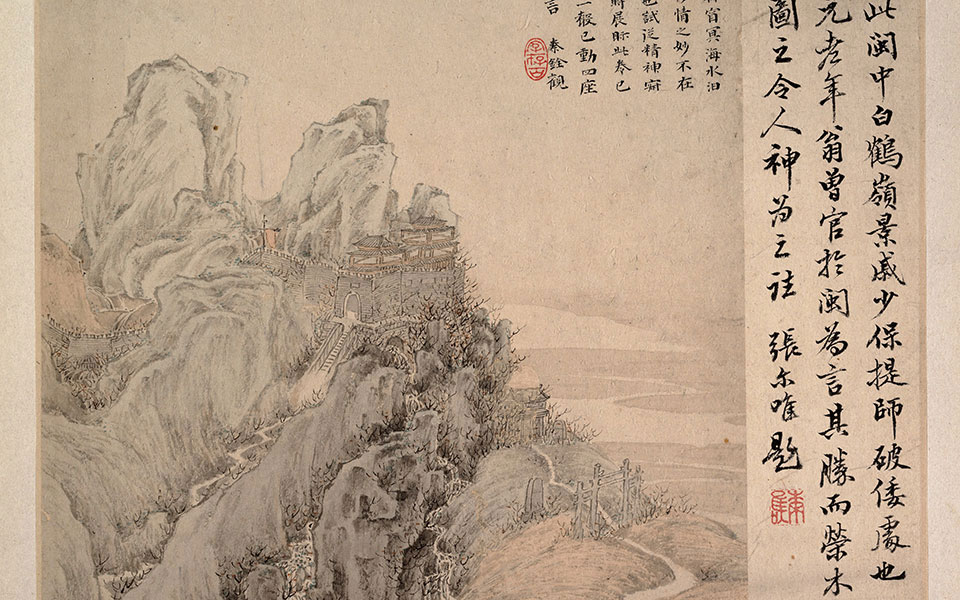 此閩中白鶴嶺景戚少保提師破倭處也
兄老年翁曾官於閩為言其勝而榮木
圖之令人神為之 張尔唯題
窅冥海水汩
移情之妙不在
也試從精神寂
時展眎此卷已
一 已動四座
言 秦銓觀